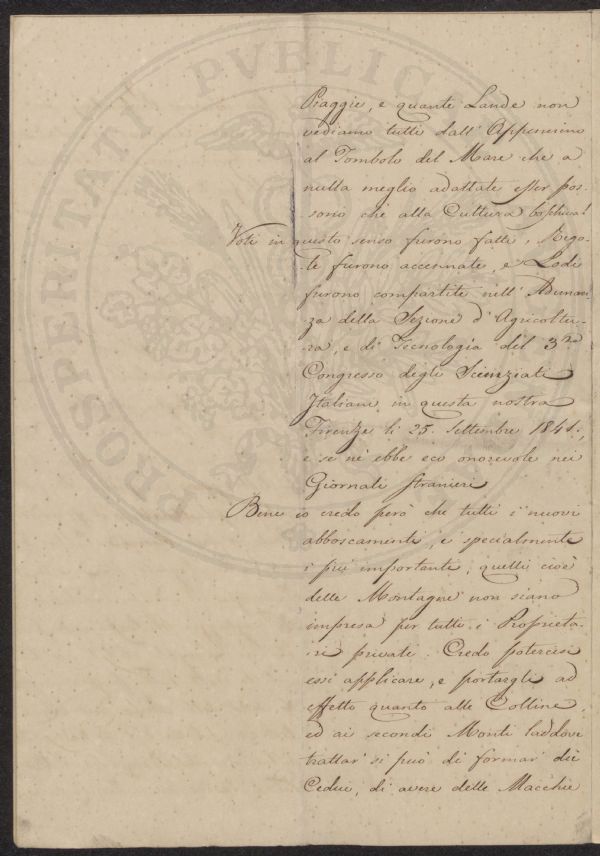 PROSPERITATI PVBLIC
Piaggie, e quante Lande non
vediamo tutti dall' Appennino
al Tombolo del Mare che a
nulla meglio adattate esser pos-
sono che alla Cultura boschiva!
Voti in questo senso furono fatti, Rego-
le furono accennate, e Lodi
furono compartite nell' Adunan-
za della Sezione d' Agricoltu-
ra, e di Tecnologia del 3zo
Congresso degli Scienziati
Italiani in questa nostra
Firenze li 25. Settembre 1841.,
e se nè ebbe eco onorevole nei
Giornali stranieri
Bene io credo però che tutti i nuovi
abboscamenti, e specialmente
i più importanti, quelli cioè
delle Montagne non siano
impresa per tutti i Proprieta-
ri privati. Credo potercisi
essi applicare, e portargli ad
effetto quanto alle Colline
ed ai secondi Monti laddove
trattar si può di formar dei
Cedui, di avere delle Macchie